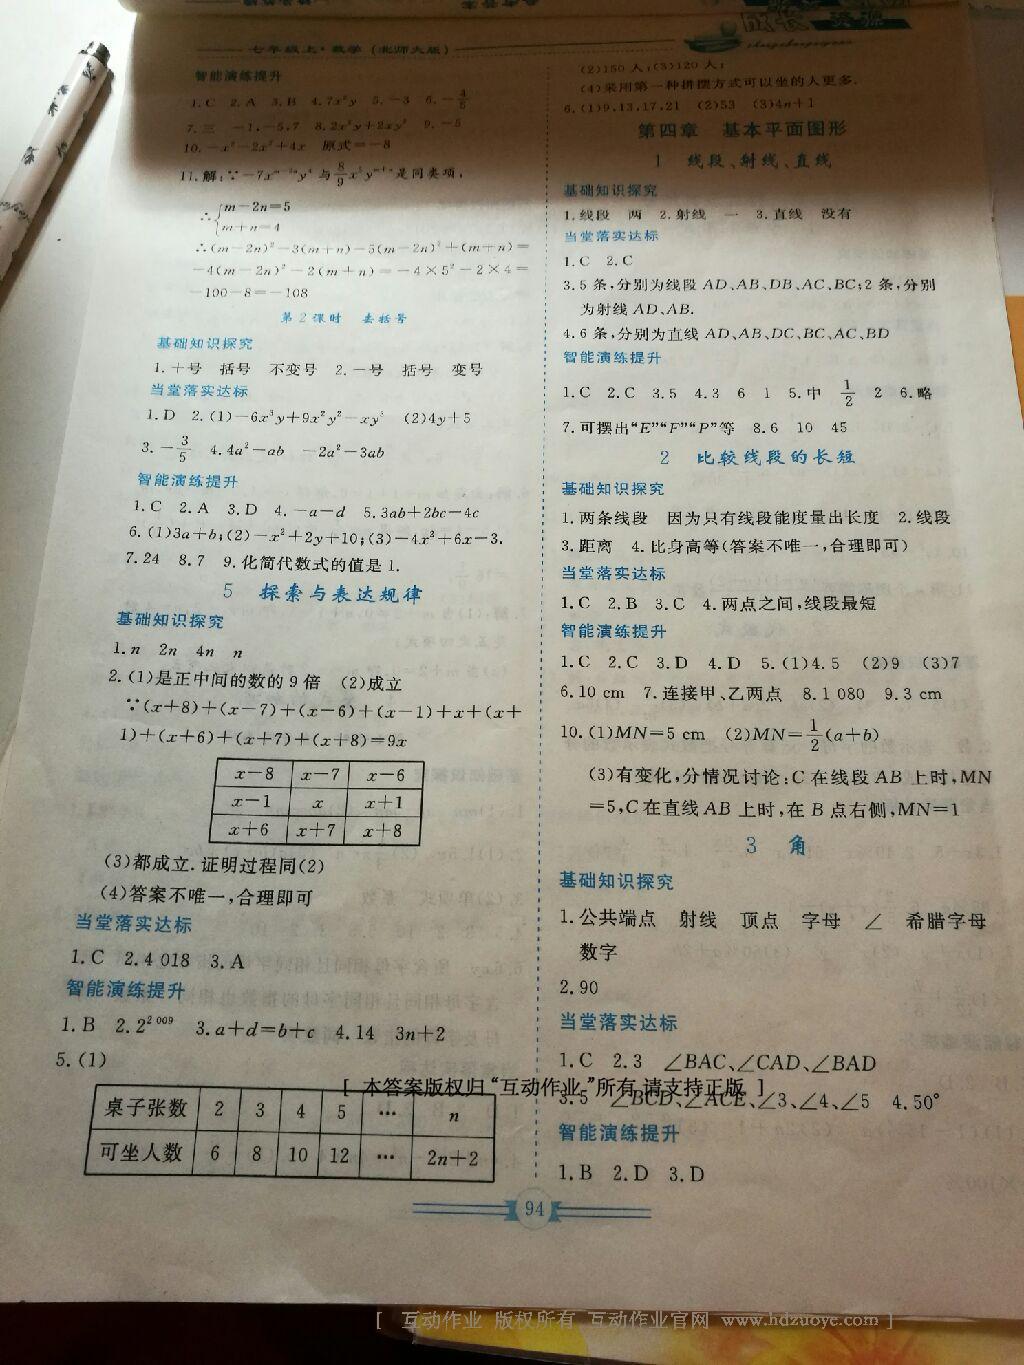 成长资源
七年级上·数学(北师大版)
智能演练提升
1.C 2.A 3.B 4.7x²y 5.-3 6.-4/5
7.三 -1,-5,7 8.2x²y+2xy² 9.-5
10.-x²-2x²+4x 原式=-8
是同类项,
∴{m-2n=5
m+n=4
∴(m-2n)²-3(m+n)-5(m-2n)²+(m+n)=
-4(m-2n)²-2(m+n)=-4×5²-2×4=
-100-8=-108
第2课时 去括号
基础知识探究
1.+号 括号 不变号 2.-号 括号 变号
当堂落实达标
1.D 2.(1)-6x³y+9x²y²-xy³ (2)4y+5
3.-3/5 4.4a²-ab -2a²-3ab
智能演练提升
1.C 2.A 3.D 4.-a-d 5.3ab+2bc-4c
6.(1)3a+b;(2)-x²+2y+10;(3)-4x³+6x-3.
7.24 8.7 9.化简代数式的值是1.
5 探索与表达规律
基础知识探究
1.n 2n 4n n
2.(1)是正中间的数的9倍 (2)成立
∵(x+8)+(x-7)+(x-6)+(x-1)+x+(x+
1)+(x+6)+(x+7)+(x+8)=9x
x-8 x-7 x-6
x-1 x x+1
x+6 x+7 x+8
(3)都成立.证明过程同(2)
(4)答案不唯一,合理即可
当堂落实达标
1.C 2.4 018 3.A
智能演练提升
1.B 2.2^2 009 3.a+d=b+c 4.14 3n+2
5.(1)
桌子张数 2 3 4 5 … n
可坐人数 6 8 10 12 … 2n+2
(2)150人;(3)120人;
(4)采用第一种拼摆方式可以坐的人更多.
6.(1)9,13,17,21 (2)53 (3)4n+1
第四章 基本平面图形
1 线段、射线、直线
基础知识探究
1.线段 两 2.射线 一 3.直线 没有
当堂落实达标
1.C 2.C
3.5条,分别为线段AD、AB、DB、AC、BC;2条,分别
为射线AD、AB.
4.6条,分别为直线AD、AB、DC、BC、AC、BD
智能演练提升
1.C 2.C 3.5 4.3 6 1 5.中 1/2 2 6.略
7.可摆出“E”“F”“P”等 8.6 10 45
2 比较线段的长短
基础知识探究
1.两条线段 因为只有线段能度量出长度 2.线段
3.距离 4.比身高等(答案不唯一,合理即可)
当堂落实达标
1.C 2.B 3.C 4.两点之间,线段最短
智能演练提升
1.C 2.C 3.D 4.D 5.(1)4.5 (2)9 (3)7
6.10 cm 7.连接甲、乙两点 8.1 080 9.3 cm
10.(1)MN=5 cm (2)MN=1/2(a+b)
(3)有变化,分情况讨论:C在线段AB上时,MN
=5,C在直线AB上时,在B点右侧,MN=1
3 角
基础知识探究
1.公共端点 射线 顶点 字母 ∠ 希腊字母
数字
2.90
当堂落实达标
1.C 2.3 ∠BAC、∠CAD、∠BAD
3.5 ∠BCD、∠ACE、∠3、∠4、∠5 4.50°
智能演练提升
1.B 2.D 3.D
[ 本答案版权归“互动作业”所有,请支持正版 ]
94
[ 互动作业 版权所有 互动作业官网 www.hdzuoye.com ]